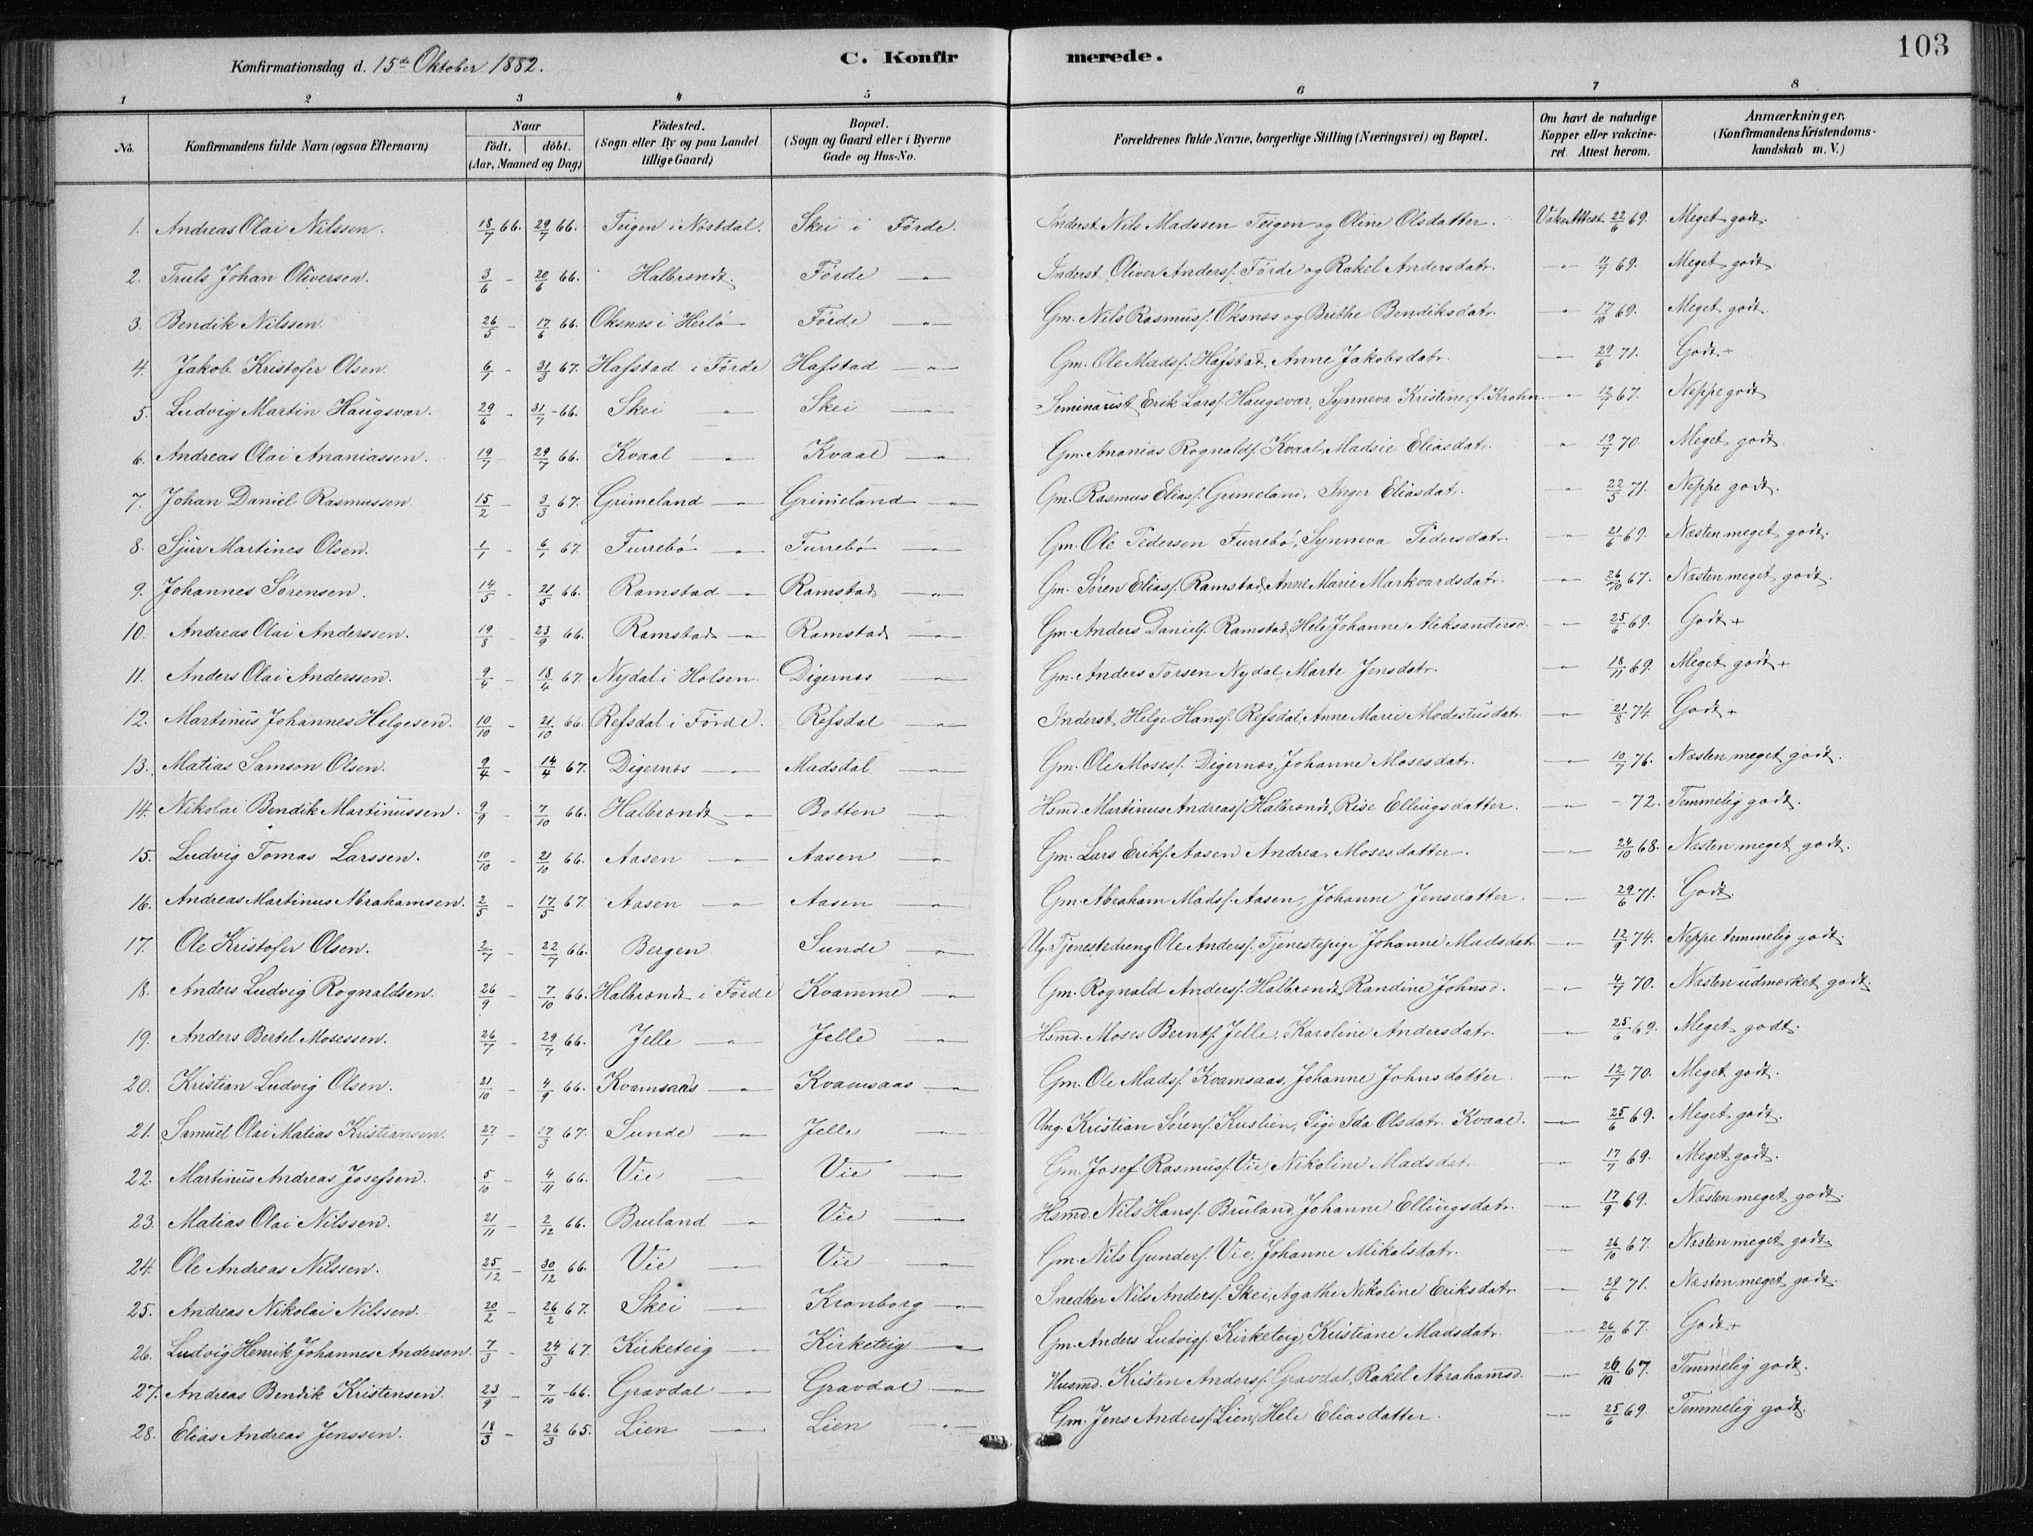 103
Konfirmationsdag d. 15de Oktober 1882.
C. Konfirmerede.
1 2 3 4 5 6 7 8
No. | Konfirmandens fulde Navn (ogsaa Efternavn) | Naar födt. döbt. (Aar, Maaned og Dag) | Födested. (Sogn eller By og paa Landet tillige Gaard) | Bopæl. (Sogn og Gaard eller i Byerne Gade og Hus-No. | Forældrenes fulde Navne, borgerlige Stilling (Næringsvei) og Bopæl. | Om havt de naturlige Kopper eller vakcineret. Attest herom. | Anmærkninger. (Konfirmandens Kristendomskundskab m. V.)
1. Andreas Olai Nilssen. 18/7 66. 29/7 66. Teigen i Nöstdal. Skei i Förde. Inderst Nils Madssen Teigen og Oline Olsdatter. Vakc. Attest 22/6 69. Meget godt.
2. Truls Johan Oliversen. 3/6 - 20/6 66. Halbrendt. Förde -"- Inderst Oliver Anders. Förde og Rakel Andersdatr. " 11/7 69. Meget godt
3. Bendik Nilssen. 26/5 - 17/6 66. Oksnæs i Herlö Förde -"- Gm. Nils Rasmus. Oksnæs og Brithe Bendiksdatr. " 17/10 69. Meget godt
4. Jakob Kristofer Olsen. 6/7 - 31/3 67. Hafstad i Förde Hafstad -"- Gm. Ole Mads. Hafstad, Anne Jakobsdatr. -"- 29/6 71. Godt +
5. Ludvig Martin Haugsvær. 29/6 - 31/7 - 66. Skei " Skei -"- Seminarist Erik Lars. Haugsvær, Synneva Kristine f. Krohn. -"- 12/7 67. Neppe godt
6. Andreas Olai Ananiassen. 19/7 - 29/7 66. Kvaal -"- Kvaal -"- Gm. Ananias Rognalds. Kvaal, Madsie Eliasdatr. " 19/7 70. Meget godt
7. Johan Daniel Rasmussen. 15/2 - 3/3 67. Grimeland -"- Grimeland -"- Gm. Rasmus Elias. Grimeland, Inger Eliasdatr. -"- 22/5 71. Neppe godt.
8. Sjur Martines Olsen. 1/1 - 6/1 67. Furrebö -"- Furrebö -"- Gm. Ole Pedersen Furrebö, Synneva Pedersdatr. -"- 21/6 69. Næsten meget godt.
9. Johannes Sörensen. 14/5 - 21/5 66. Ramstad -"- Ramstad -"- Gm. Sören Elias. Ramstad, Anne Marie Markvardsdatr. -"- 26/10 67. Næsten meget godt.
10. Andreas Olai Anderssen. 19/8 - 23/9 66. Ramstad -"- Ramstad -"- Gm. Anders Daniels. Ramstad, Hele Johanne Aleksandersd. -"- 25/6 69. Godt +
11. Anders Olai Anderssen. 9/4 - 18/4 67. Nydal i Holsen. Digernes -"- Gm. Anders Torsen Nydal, Marte Jensdatr. -"- 18/11 69. Meget godt +
12. Martinus Johannes Helgesen. 10/10 - 21/10 66. Refsdal i Förde. Refsdal -"- Inderst Helge Hans. Refsdal, Anne Marie Modestusdatr. -"- 21/8 74. Godt +
13. Matias Samson Olsen. 9/4 - 14/4 67. Digernes -"- Madsdal -"- Gm. Ole Moses. Digernes, Johanne Mosesdatr. -"- 10/7 76. Næsten meget godt.
14. Nikolai Bendik Martinussen. 9/9 - 7/10 66. Halbrendt -"- Botten -"- Hsmd. Martinus Andreas. Halbrendt, Rise Ellingsdatter. -"- - 72. Temmelig godt.
15. Ludvig Tomas Larssen. 10/10 - 21/10 66. Aasen -"- Aasen -"- Gm. Lars Eriks. Aasen Andrea Mosesdatter. -"- 24/10 68. Næsten meget godt.
16. Andreas Martinus Abrahamsen. 2/5 - 17/5 67. Aasen -"- Aasen -"- Gm. Abraham Mads. Aasen, Johanne Jensdatter. -"- 29/6 71. Godt.
17. Ole Kristofer Olsen. 2/7 - 22/7 66. Bergen Sunde -"- Ug. Tjenestedreng Ole Anders. Tjenestepige Johanne Madsdatr. -"- 12/9 74. Neppe temmelig godt.
18. Anders Ludvig Rognaldsen. 26/9 - 7/10 66. Halbrendt i Förde Kvamme -"- Gm. Rognald Anders. Halbrendt, Randine Johnsd. -"- 4/7 70. Næsten udmærket godt.
19. Anders Bertel Mosessen. 26/7 - 29/7 66. Jelle -"- Jelle -"- Hsmd. Moses Bernts. Jelle, Karoline Andersdatr. -"- 25/6 69. Meget godt.
20. Kristian Ludvig Olsen. 21/10 - 4/9 66. Kvamsaas -"- Kvamsaas -"- Gm. Ole Mads. Kvamsaas, Johanne Johnsdatter. -"- 12/7 70. Meget godt.
21. Samuel Olai Matias Kristiansen. 27/1 - 17/3 67. Sunde -"- Jelle -"- Ung. Kristian Sörens. Pige Ida Olsdatr. Kvaal. -"- 25/6 69. Meget godt.
22. Martinus Andreas Josefsen. 5/10 - 4/11 66. Vie -"- Vie -"- Gm. Josef Rasmus. Vie, Nikoline Madsdat. -"- 17/7 69. Meget godt.
23. Matias Olai Nilssen. 21/11 - 2/12 66. Bruland -"- Vie -"- Hsmd. Nils Hans. Bruland, Johanne Ellingsdatr. -"- 17/9 69. Næsten meget godt.
24. Ole Andreas Nilssen. 25/12 - 30/12 66. Vie -"- Vie -"- Gm. Nils Gunders. Vie, Johanne Mikalsdatr. -"- 26/10 67. Næsten meget godt
25. Andreas Nikolai Nilssen. 20/2 - 26/2 67. Skei -"- Kronborg -"- Snedker Nils Anders. Skei, Agathe Nikoline Eriksdatr. -"- 29/6 71. Næsten meget godt.
26. Ludvig Henrik Johannes Andersen. 7/3 - 24/3 67. Kirketeig -"- Kirketeig -"- Gm. Anders Ludvigs. Kirketeig, Kristiane Madsdatr. -"- 26/10 67. Godt +
27. Andreas Bendik Kristensen. 23/9 - 7/10 - 66. Gravdal -"- Gravdal -"- Husmd. Kristen Anders. Gravdal, Rakel Abrahamsd. -"- 26/10 67. Temmelig godt.
28. Elias Andreas Jenssen. 18/3 - 26/3 65. Lien -"- Lien -"- Gm. Jens Anders. Lien, Hele Eliasdatter. -"- 25/6 69. Temmelig godt.